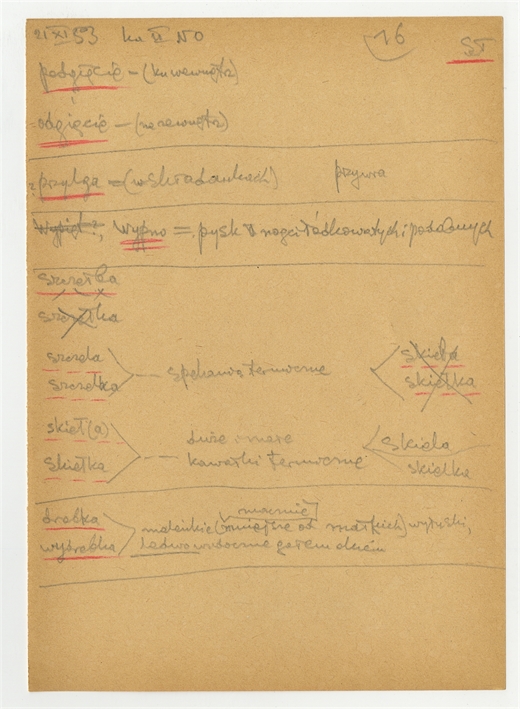 21 XI 53 ku II NO 16 ST
podgięcie – (ku wewnątrz)
i
odgięcie – (na zewnątrz)
? przylga – (w składankach) przywra
Wypięt?, wypno = pysk nogi łódkowatych i podobnych
szczelba
szczelka
szczela
szczelka
spękania termiczne
skiela
skielka
skieł(a)
skiełka
duże i małe
kawałki termiczne
skiela
skielka
drobka
wydrobka
malenkie (mniejsze od małych) wypryski,
ledwo widoczne gołem okiem